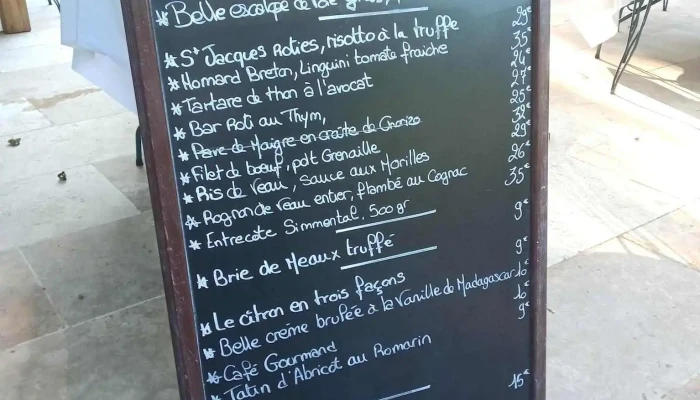 * Belle escalope de foie gras,
* St Jacques Roties, risotto à la truffe 29€
* Homard Breton, Linguini tomate fraiche 35€
* Tartare de thon à l'avocat 24€
* Bar Roti au Thym, 27€
* Pavé de Maigre en croûte de Chorizo 25€
* Filet de boeuf, pdt Grenaille 32€
* Ris de veau, sauce aux Morilles 29€
* Rognon de veau entier, flambé au Cognac 26€
* Entrecote Simmental. 500 gr 35€
* Brie de Meaux truffé 9€
* Le citron en trois façons 9€
* Belle crème brulée à la Vanille de Madagascar 10€
* Café Gourmand 10€
* Tatin d'Abricot au Romarin 9€
15€